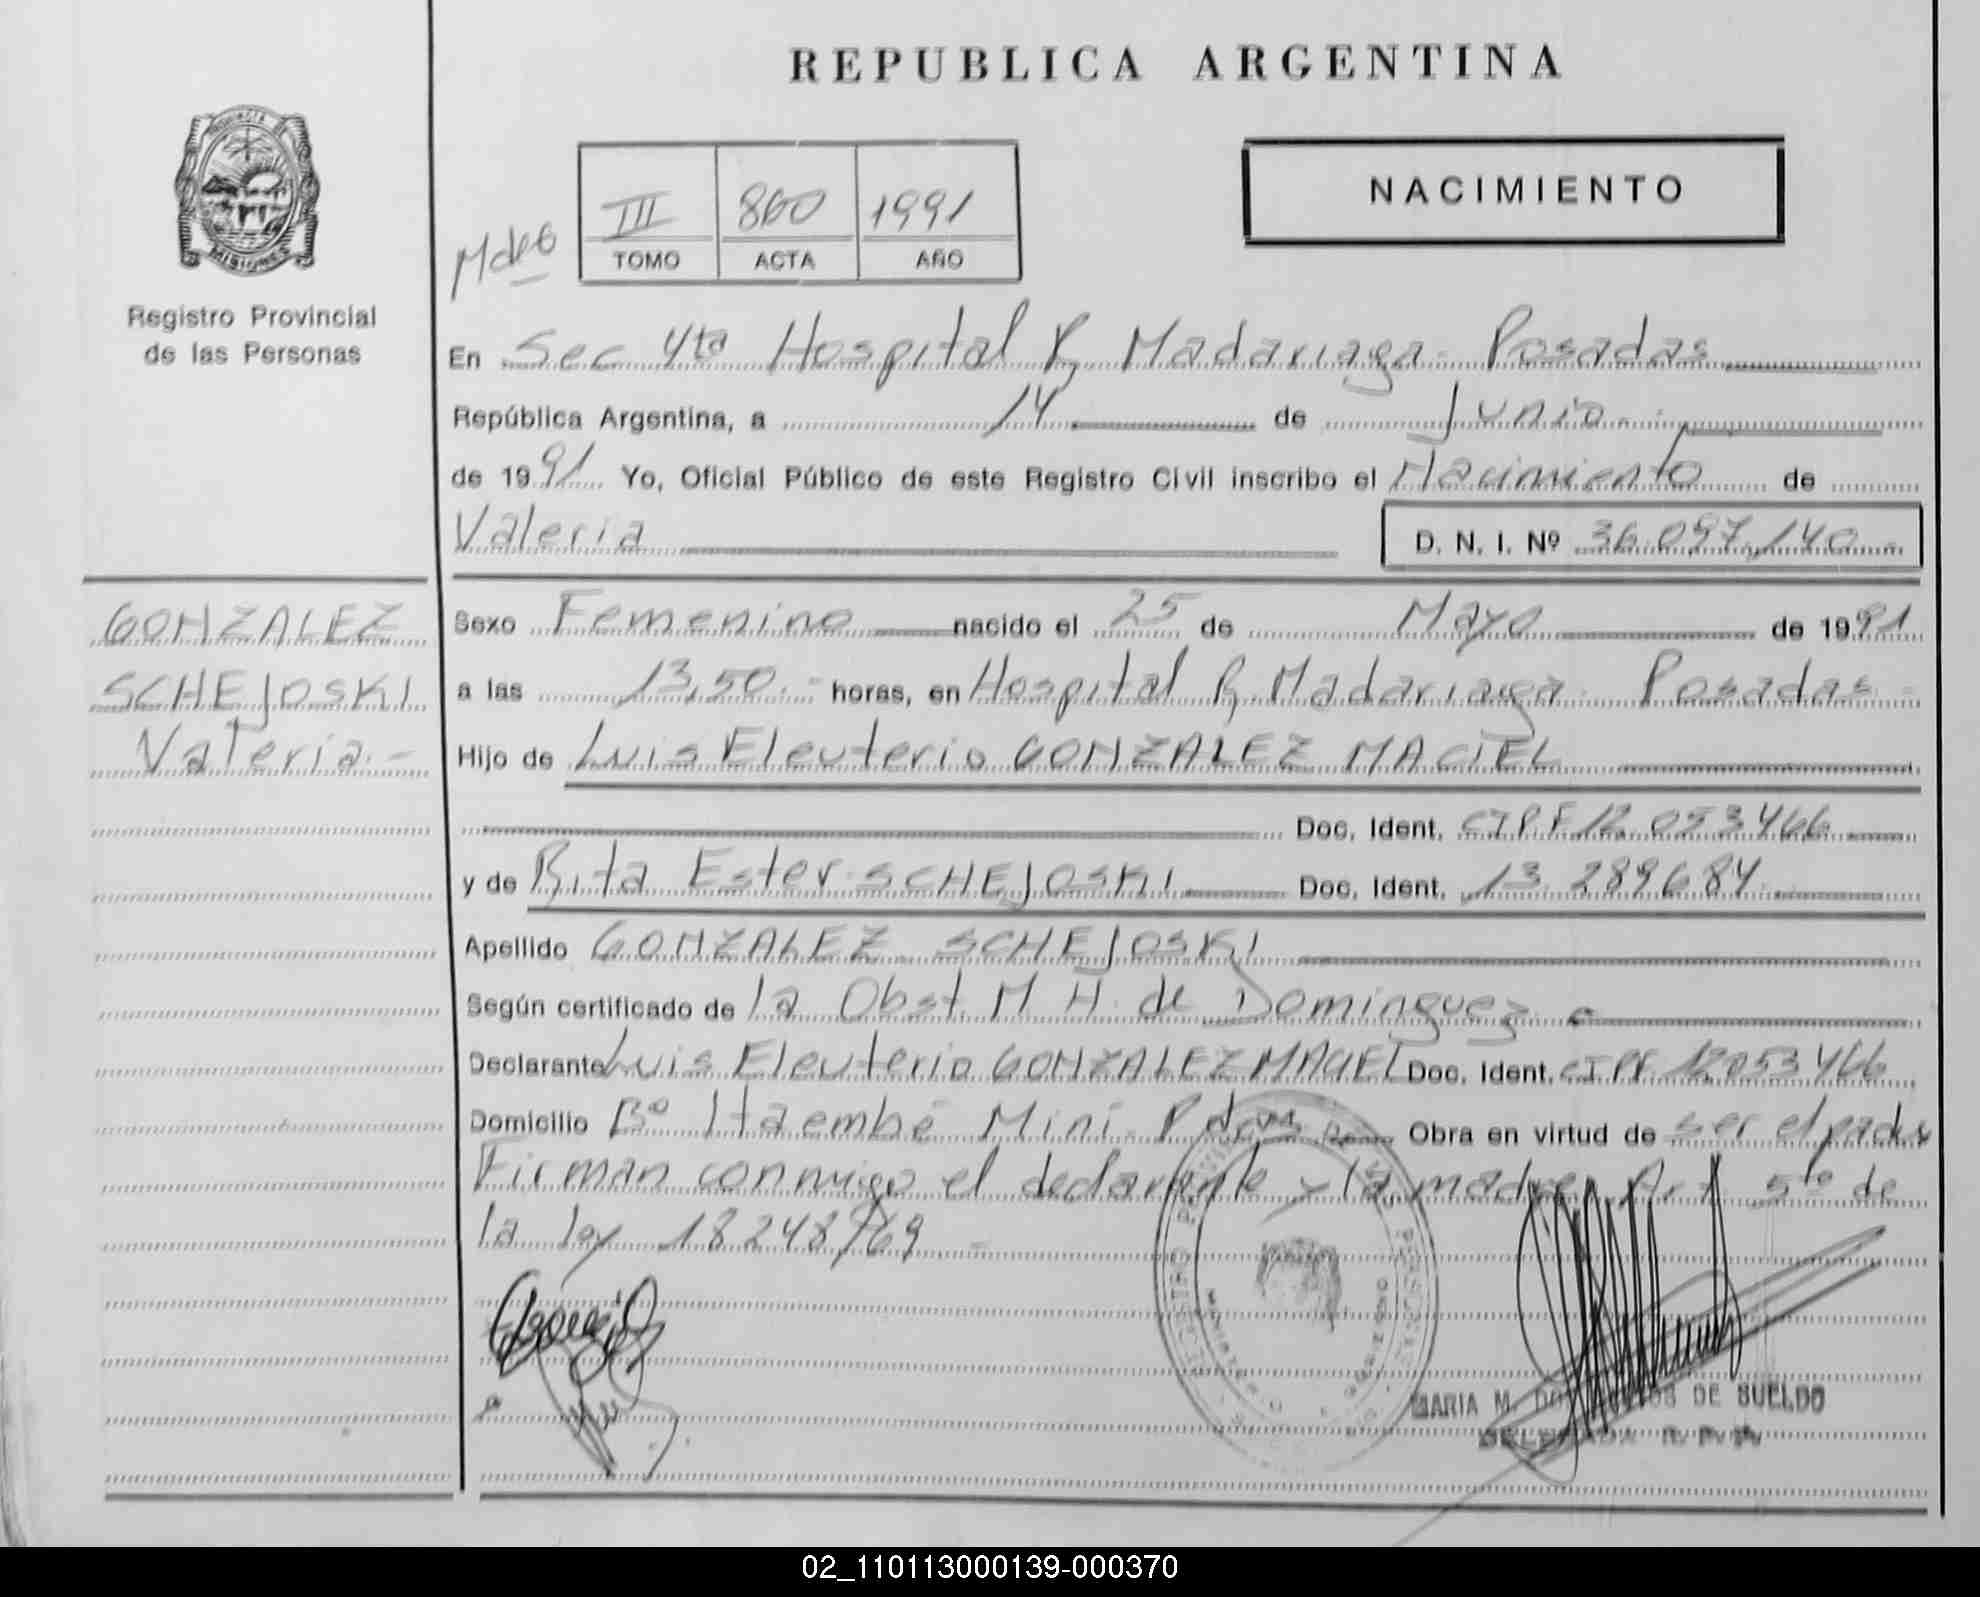 REPUBLICA ARGENTINA
PROVINCIA
MISIONES
Registro Provincial
de las Personas
NACIMIENTO
III 860 1991
TOMO ACTA AÑO
En Sec 4ta Hospital R. Madariaga - Posadas
República Argentina, a 14 de Junio
de 1991 Yo, Oficial Público de este Registro Civil inscribo el Nacimiento de
Valeria D. N. I. Nº 36.097.140.-
GONZALEZ
SCHEJOSKI
Valeria.-
Sexo Femenino nacido el 25 de Mayo de 1991
a las 13,50.- horas, en Hospital R. Madariaga Posadas -
Hijo de Luis Eleuterio GONZALEZ MACIEL
Doc. Ident. CIPF 12.053466
y de Rita Ester SCHEJOSKI Doc. Ident. 13 289684
Apellido GONZALEZ SCHEJOSKI
Según certificado de la Obst. M. H. de Dominguez
Declarante Luis Eleuterio GONZALEZ MACIEL Doc. Ident. CIPF 12053466
Domicilio Bº Itaembé Mini - Pdas Obra en virtud de ser el padre
Firman conmigo el declarante y la madre. Art 5to de
la ley 18248/69 -
MARIA M. DE SUELDO
DELEGADA R. P. P.
02_110113000139-000370